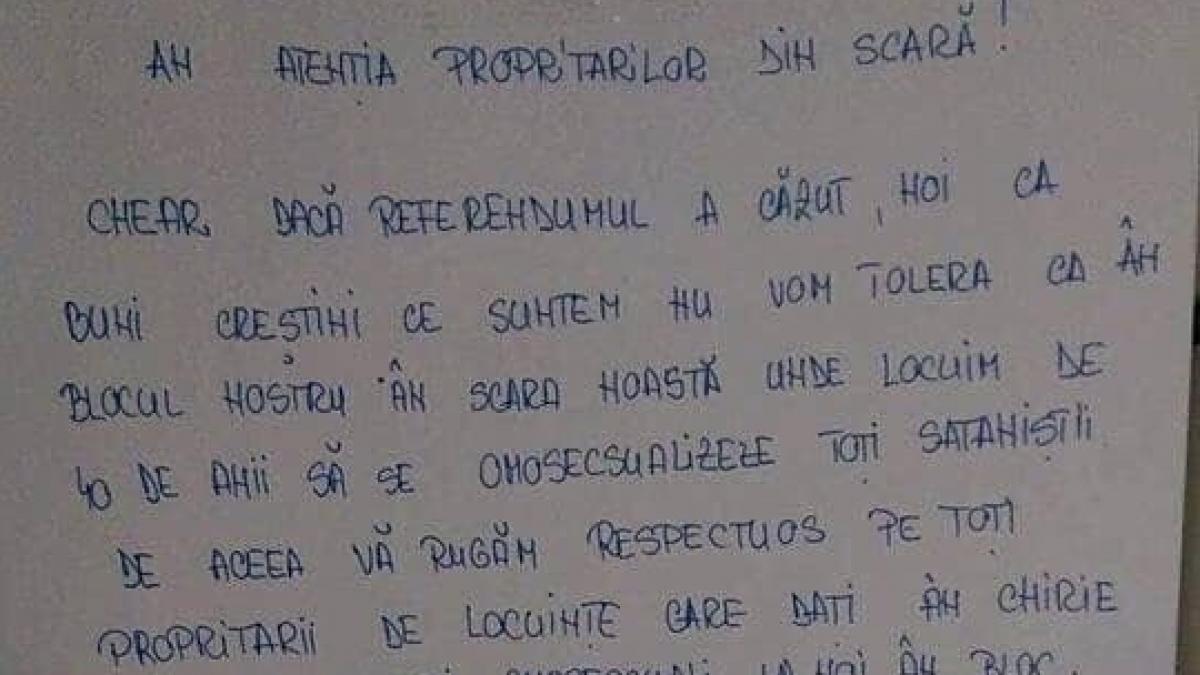 AN ATENȚIA PROPRITARILOR DIN SCARĂ!
CHEAR DACĂ REFERENDUMUL A CĂZUT, NOI CA
BUNI CREȘTINI CE SUNTEM NU VOM TOLERA CA ÂN
BLOCUL NOSTRU ÂN SCARA NOASTĂ UNDE LOCUIM DE
40 DE ANII SĂ SE OMOSECSUALIZEZE TOȚI SATANIȘTII
DE ACEEA VĂ RUGĂM RESPECTUOS PE TOȚI
PROPRITARII DE LOCUINȚE CARE DATI ÂN CHIRIE
LA NOI ÂN BLOC.